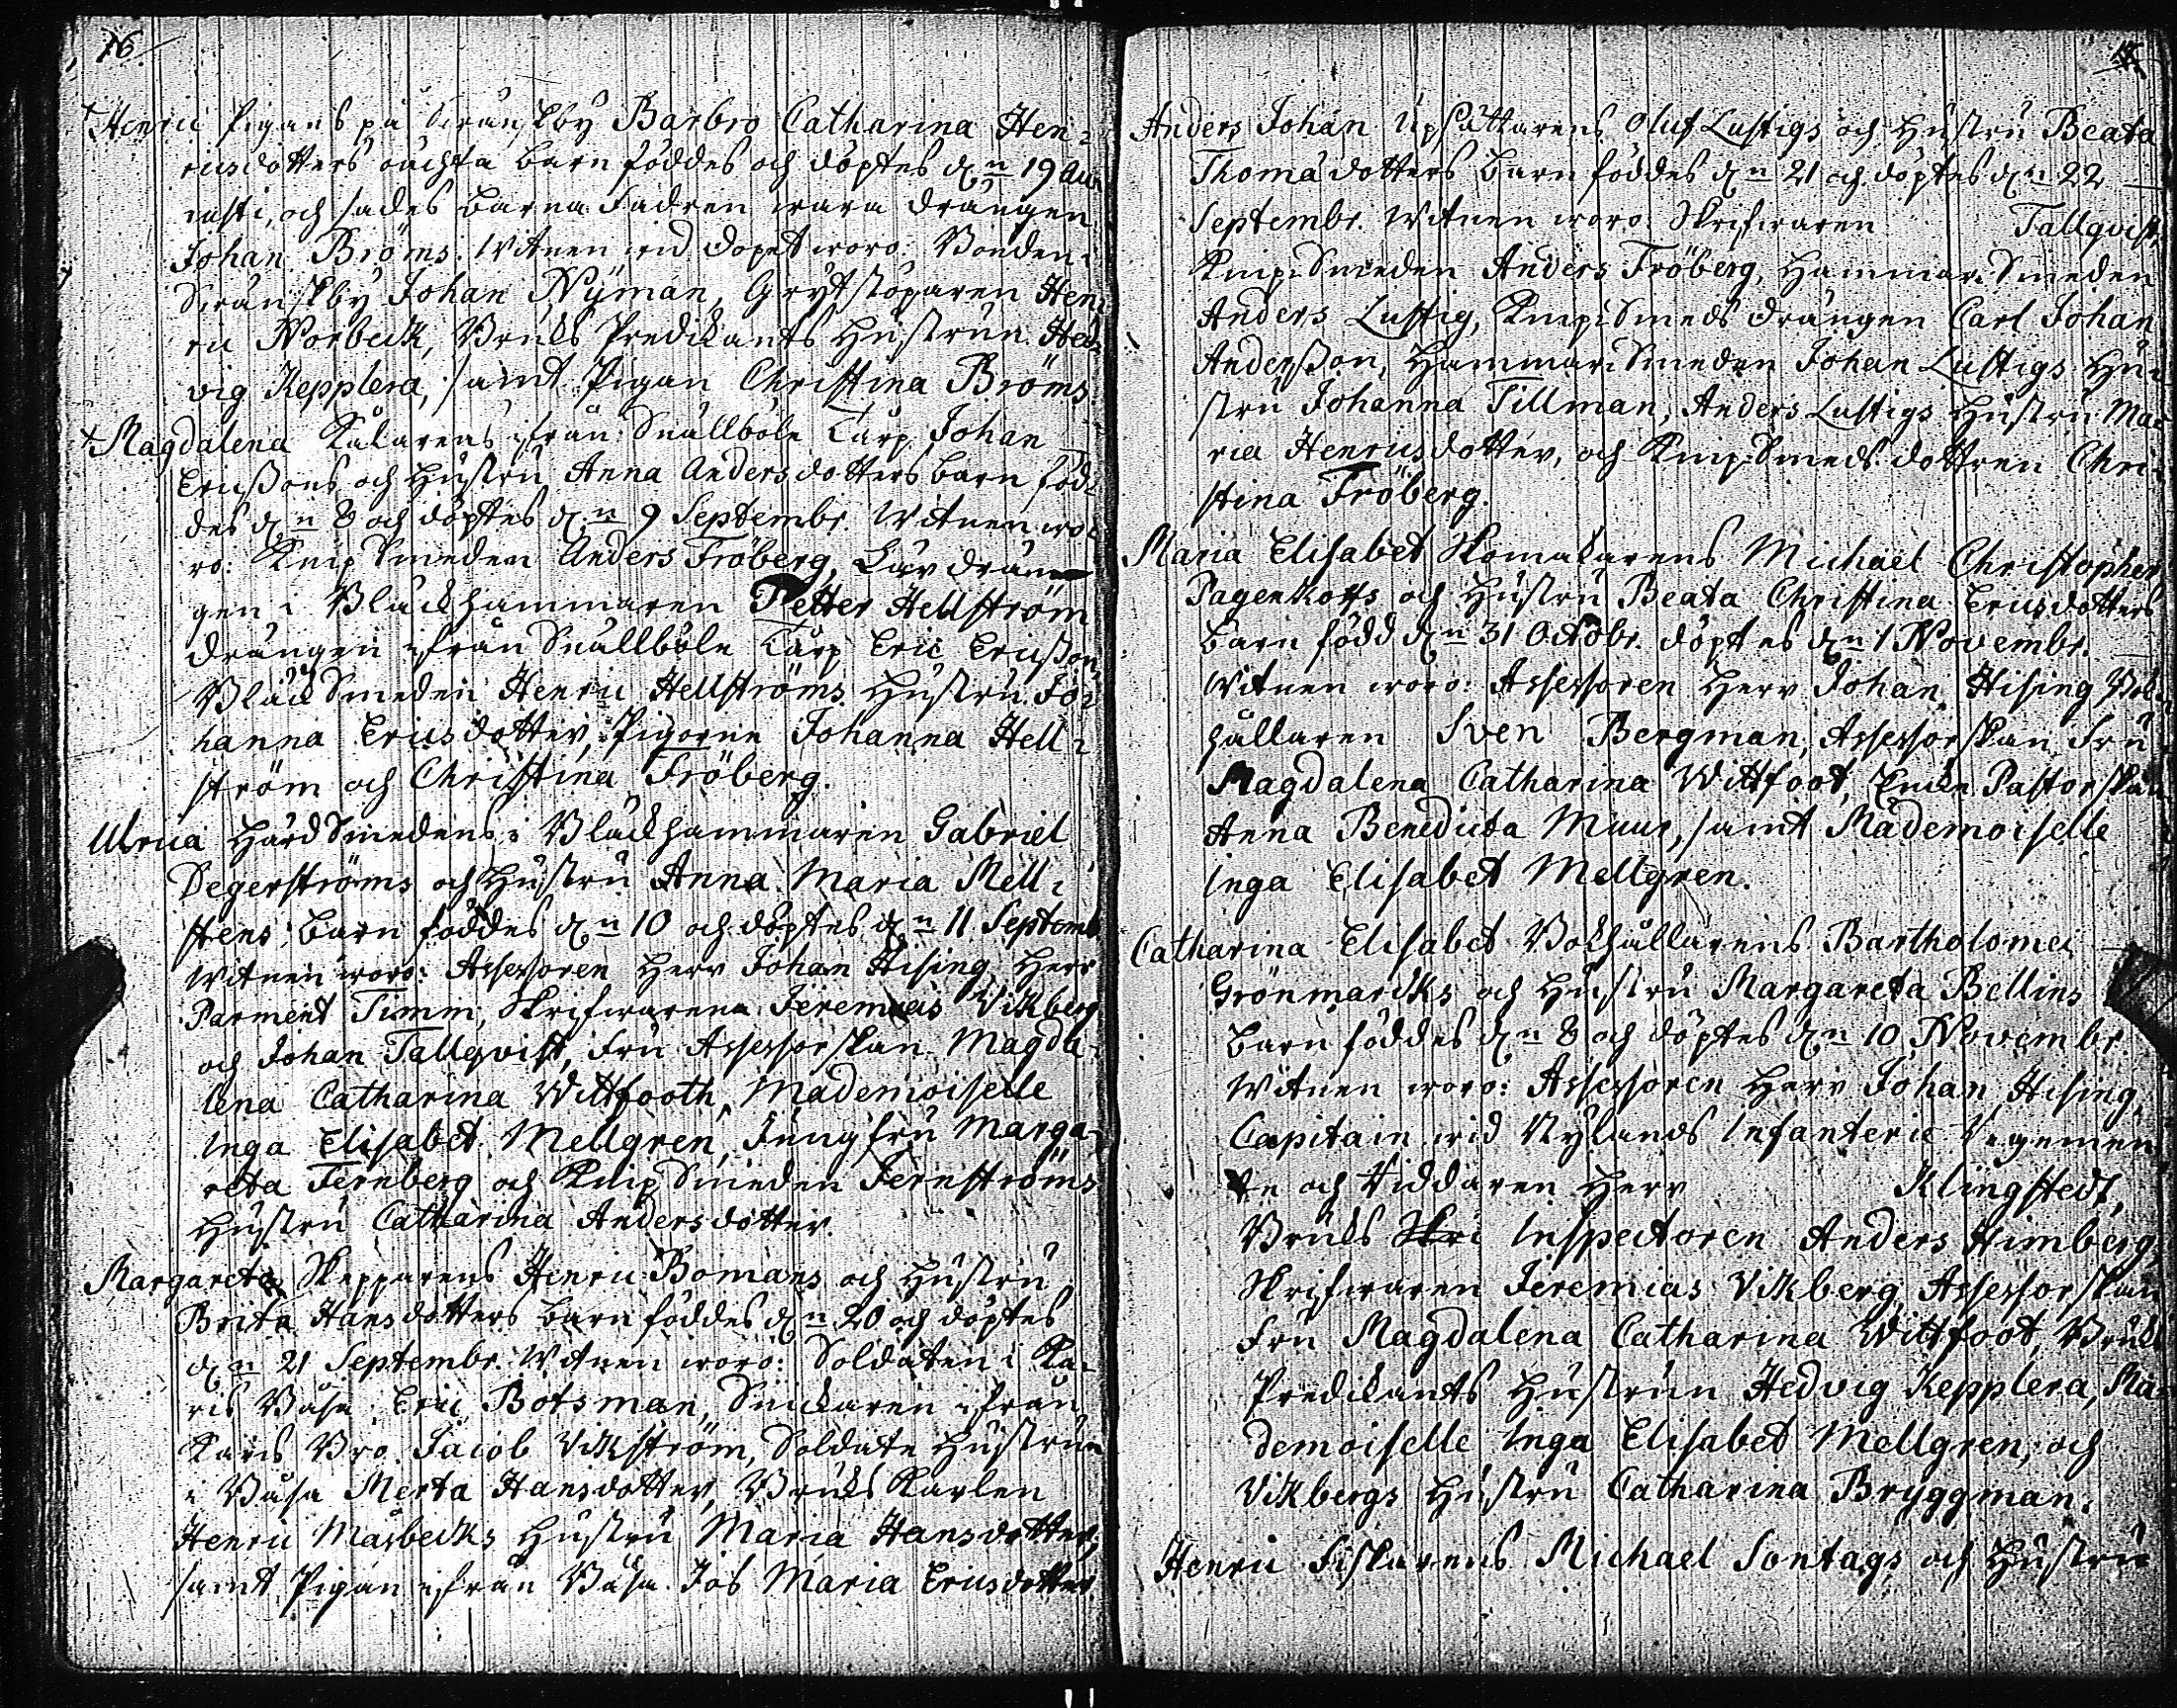 16
Henric Pigans på Svenskby Barbro Catharina Hen-
ricsdotters oächta barn föddes och döptes d:n 19 Au-
gusti, och sades barna Fadren wara drängen
Johan Bröms. Witnen wid dopet woro: Bonden i
Svenskby Johan Nyman, Grytstöparen Hen-
ric Norbeck, Bruks Predikants Hustrun Hed-
vig Kepplera, samt Pigan Christina Bröms.
Magdalena Kakarens ifrån Snällböle Tårp Johan
Ericßons och Hustru Anna Andersdotters barn föd-
des d:n 8 och döptes d:n 9 Septembr. Witnen wo-
ro: Knip Smeden Anders Fröberg, Lärdrän-
gen i Bläckhammaren Petter Hellström
drängen ifrån Snällböle Tårp Eric Ericßon
Bläck Smeden Henric Hellströms Hustru Jo-
hanna Ericsdotter, Pigorne Johanna Hell-
ström och Christina Fröberg.
Ulrica Härd Smedens i Bläckhammaren Gabriel
Degerströms och Hustru Anna Maria Mell-
stens barn föddes d:n 10 och döptes d:n 11 Septemb.
Witnen woro: Assessoren Herr Johan Hising, Herr
Parment Timm, Skrifwarena Jeremias Vikberg
och Johan Tallqvist, Fru Assessorskan Magda-
lena Catharina Wittfooth, Mademoiselle
Inga Elisabet Mellgren, Jungfru Marga-
reta Fernberg och Knip Smeden Fernströms
Hustru Catharina Andersdotter.
Margareta Skepparens Henric Bomans och Hustru
Brita Hansdotters barn föddes d:n 20 och döptes
d:n 21 Septembr. Witnen woro: Soldaten i Ka-
ris Båsa Eric Botsman, Snickaren ifrån
Karis Bro Jacob Vikström, Soldate Hustrun
i Båsa Merta Hansdotter, Bruks Karlen
Henric Masbecks Hustru Maria Hansdotter,
samt Pigan ifrån Båsa Jos Maria Ericsdotter.
Anders Johan Upsättarens Oluf Lustigs och Hustru Beata
Thomædotters barn föddes d:n 21 och döptes d:n 22
Septembr. Witnen woro Skrifwaren Tallqvist,
Knip-Smeden Anders Fröberg, Hammar-Smeden
Anders Lustig, Knip-Smeds drängen Carl Johan
Anderßon, Hammar-Smeden Johan Lustigs Hu-
stru Johanna Tillman, Anders Lustigs Hustru Ma-
ria Henricsdotter, och Knip-Smeds dottren Chri-
stina Fröberg.
Maria Elisabet Skomakarens Michael Christopher
Pagenkoffs och Hustru Beata Christina Ericsdotters
barn född d:n 31 Octobr. döptes d:n 1 Novembr.
Witnen woro: Assessoren Herr Johan Hising, Bok-
hållaren Sven Bergman, Assessorskan Fru
Magdalena Catharina Wittfoot, Enke Pastorskan
Anna Benedicta Muur, samt Mademoiselle
Inga Elisabet Mellgren.
Catharina Elisabet Bokhållarens Bartholomei
Grönmarcks och Hustru Margareta Bellins
barn föddes d:n 8 och döptes d:n 10 Novembr.
Witnen woro: Assessoren Herr Johan Hising,
Capitain wid Nylands Infanterie Regemen-
te och Riddaren Herr Klingstedt,
Bruks Skri Inspectoren Anders Himberg,
Skrifwaren Jeremias Vikberg, Assessorskan
Fru Magdalena Catharina Wittfoot, Bruks
Predikants Hustrun Hedvig Kepplera, Ma-
demoiselle Inga Elisabet Mellgren, och
Vikbergs Hustru Catharina Bryggman.
Henric Fiskarens Michael Sontags och Hustru